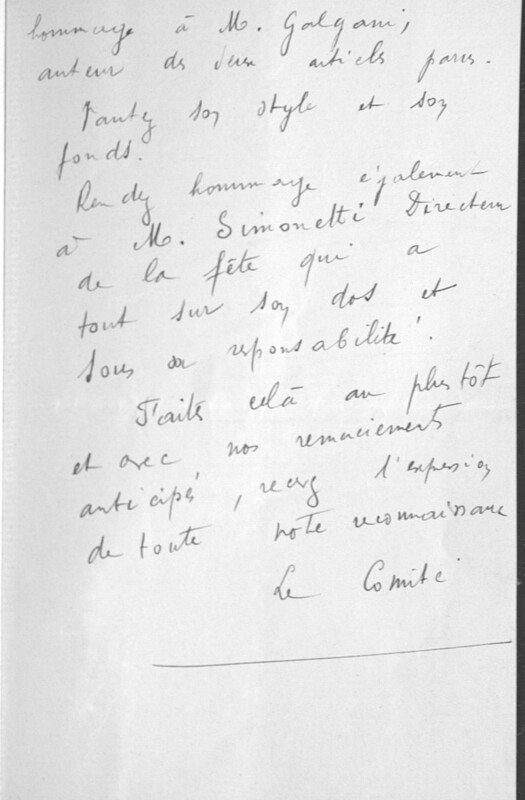 hommage à M. Galgani,
auteur des deux articles parus.
Vantez son style et son
fonds.
Rendez hommage également
à M. Simonetti Directeur
de la fête qui a
tout sur son dos et
sous sa reponsabilité.
Faites celà au plus tôt
et avec nos remerciements
anticipés, recevez l'expression
de toute notre reconnaissance
Le Comité